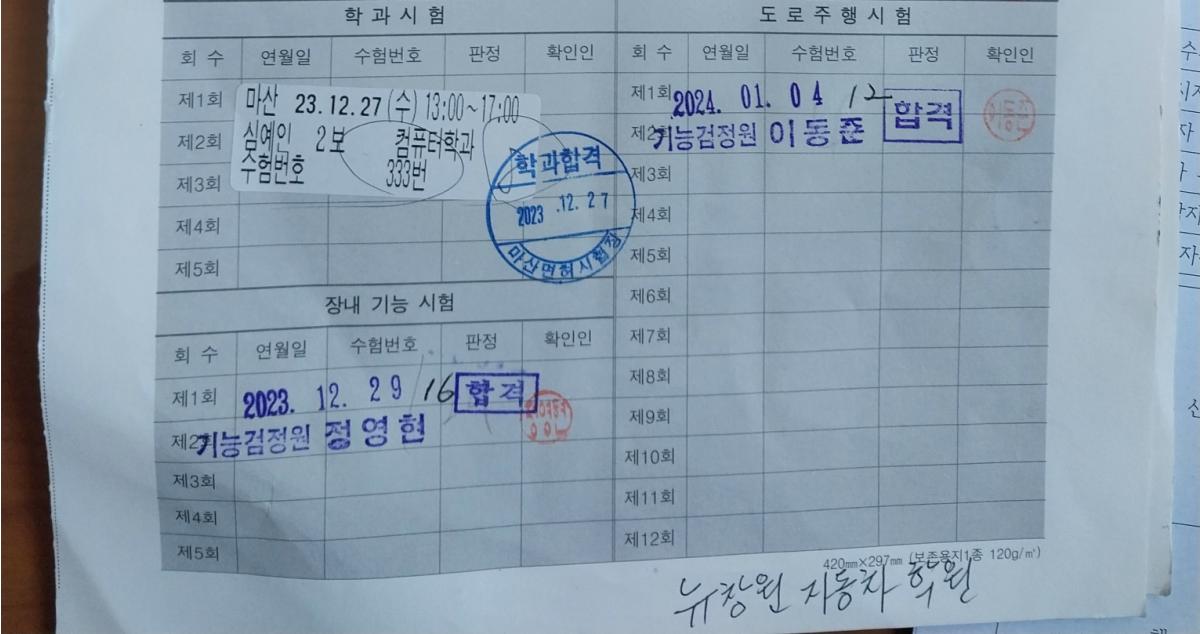 학과시험
회 수 연월일 수험번호 판정 확인인
제1회
마산 23.12.27 (수) 13:00~17:00
제2회
심예인 2보 컴퓨터학과
제3회
수험번호 333번
학과합격
2023.12.27
마산면허시험장
제4회
제5회
장내 기능 시험
회 수 연월일 수험번호 판정 확인인
제1회 2023. 12. 29 16 합격
제2회 기능검정원 정영현
제3회
제4회
제5회
도로주행시험
회 수 연월일 수험번호 판정 확인인
제1회 2024. 01. 04 12 합격
제2회 기능검정원 이동준
이동준인
제3회
제4회
제5회
제6회
제7회
제8회
제9회
제10회
제11회
제12회
420mm×297mm (보존용지1종 120g/㎡)
뉴창원 자동차 학원